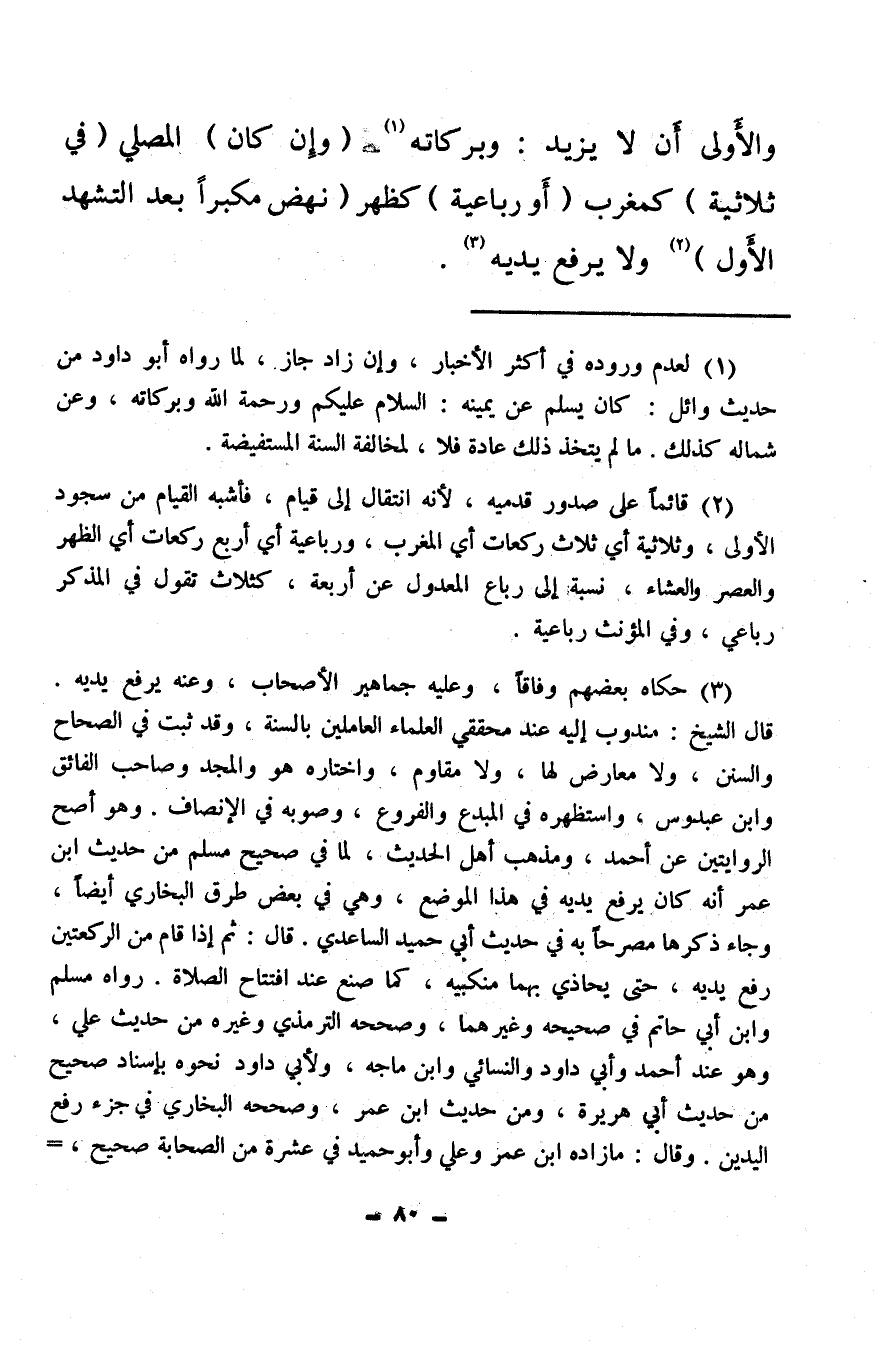 والأَولى أَن لا يزيد : وبركاته(١) ( وإن كان ) المصلي ( في
ثلاثية ) كمغرب ( أَو رباعية ) كظهر ( نهض مكبراً بعد التشهد
الأَول )(٢) ولا يرفع يديه(٣) .
(١) لعدم وروده في أكثر الأخبار ، وإن زاد جاز ، لما رواه أبو داود من
حديث وائل : كان يسلم عن يمينه : السلام عليكم ورحمة الله وبركاته ، وعن
شماله كذلك . ما لم يتخذ ذلك عادة فلا ، لمخالفة السنة المستفيضة .
(٢) قائماً على صدور قدميه ، لأنه انتقال إلى قيام ، فأشبه القيام من سجود
الأولى ، وثلاثية أي ثلاث ركعات أي المغرب ، ورباعية أي أربع ركعات أي الظهر
والعصر والعشاء ، نسبة إلى رباع المعدول عن أربعة ، كثلاث تقول في المذكر
رباعي ، وفي المؤنث رباعية .
(٣) حكاه بعضهم وفاقاً ، وعليه جماهير الأصحاب ، وعنه يرفع يديه .
قال الشيخ : مندوب إليه عند محققي العلماء العاملين بالسنة ، وقد ثبت في الصحاح
والسنن ، ولا معارض لها ، ولا مقاوم ، واختاره هو والمجد وصاحب الفائق
وابن عبدوس ، واستظهره في المبدع والفروع ، وصوبه في الإنصاف . وهو أصح
الروايتين عن أحمد ، ومذهب أهل الحديث ، لما في صحيح مسلم من حديث ابن
عمر أنه كان يرفع يديه في هذا الموضع ، وهي في بعض طرق البخاري أيضاً ،
وجاء ذكرها مصرحاً به في حديث أبي حميد الساعدي . قال : ثم إذا قام من الركعتين
رفع يديه ، حتى يحاذي بهما منكبيه ، كما صنع عند افتتاح الصلاة . رواه مسلم
وابن أبي حاتم في صحيحه وغيرهما ، وصححه الترمذي وغيره من حديث علي ،
وهو عند أحمد وأبي داود والنسائي وابن ماجه ، ولأبي داود نحوه بإسناد صحيح
من حديث أبي هريرة ، ومن حديث ابن عمر ، وصححه البخاري في جزء رفع
اليدين . وقال : مازاده ابن عمر وعلي وأبوحميد في عشرة من الصحابة صحيح ، =
– ٨٠ –